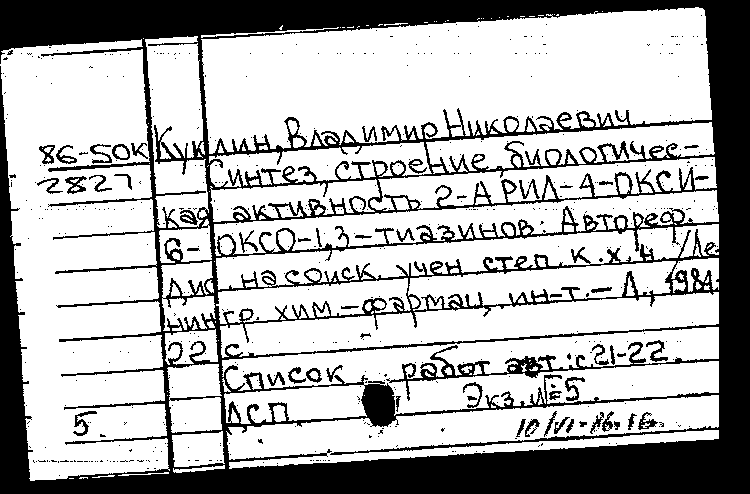 86-5ОК Куклин, Владимир Николаевич.
2827 Синтез, строение, биологичес-
кая активность 2-АРИЛ-4-ОКСИ-
6-ОКСО-1,3-тиазинов: Автореф.
дис. на соиск. учен степ. к.х.н. /Ле-
нингр. хим.-фармац. ин-т.-Л., 1984.
22 с.
Список работ авт.: с 21-22.
5. ДСП. Экз.№5.
10/VI-86.